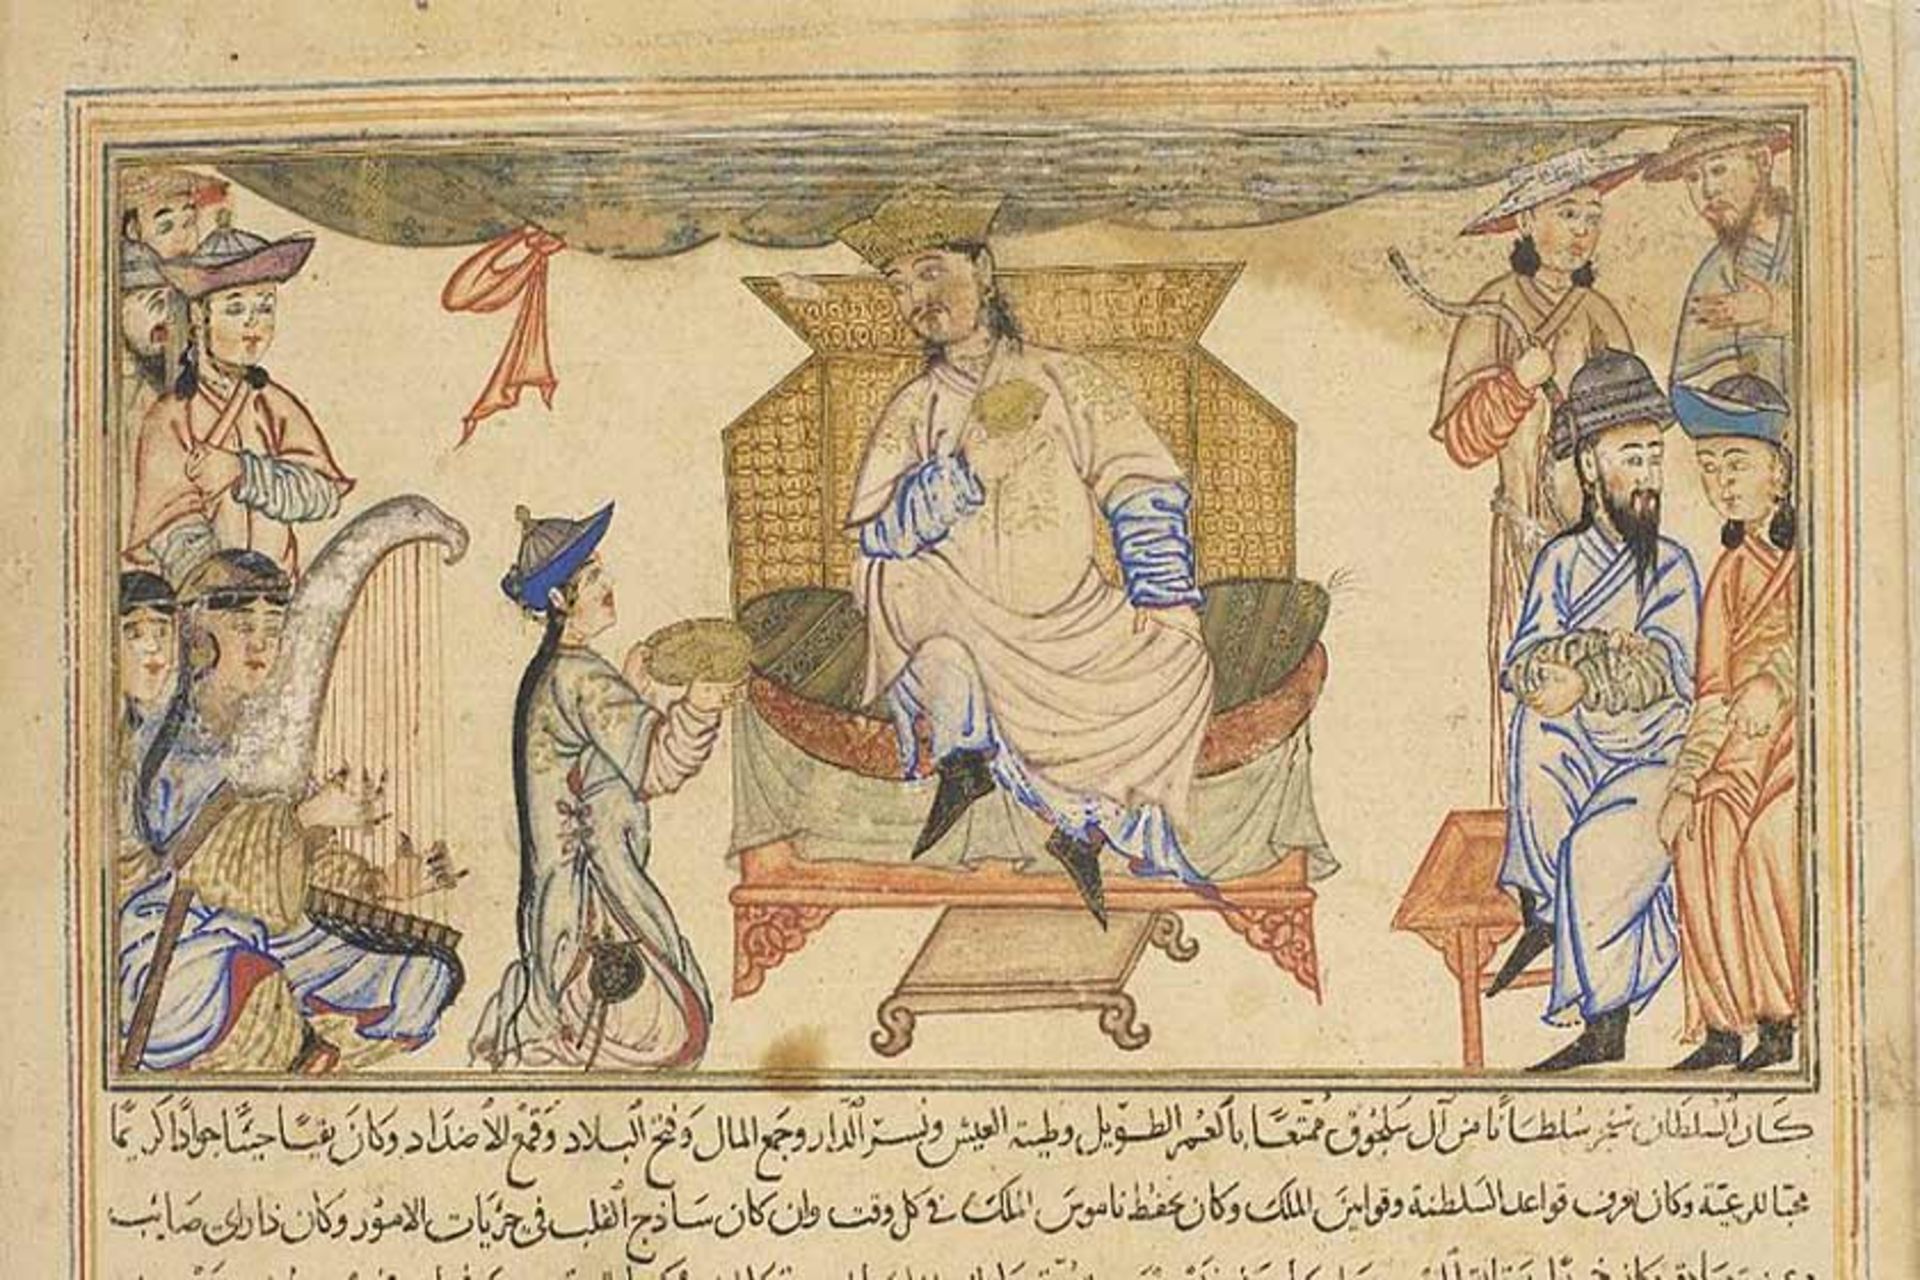 كان السلطان سنجر سلطاناً من آل سلجوق ممتعاً بالعمر الطويل وطيبة العيش ونسر الدار وجمع المال وفتح البلاد وقمع الأضداد وكان يقيناً حييّاً جواداً كريماً
محبّا للرعيّة وكان يعرف قواعد السلطنة وقوانين الملك وكان يحفظ ناموس الملك في كل وقت وان كان ساذج القلب في جزئيات الامور وكان ذا راى صايب